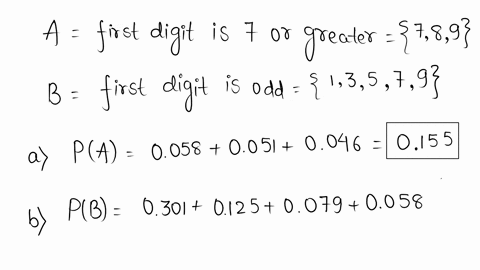 A = first digit is 7 or greater = {7,8,9}
B = first digit is odd = {1,3,5,7,9}
a) P(A) = 0.058 + 0.051 + 0.046 = 0.155
b) P(B) = 0.301 + 0.125 + 0.079 + 0.058